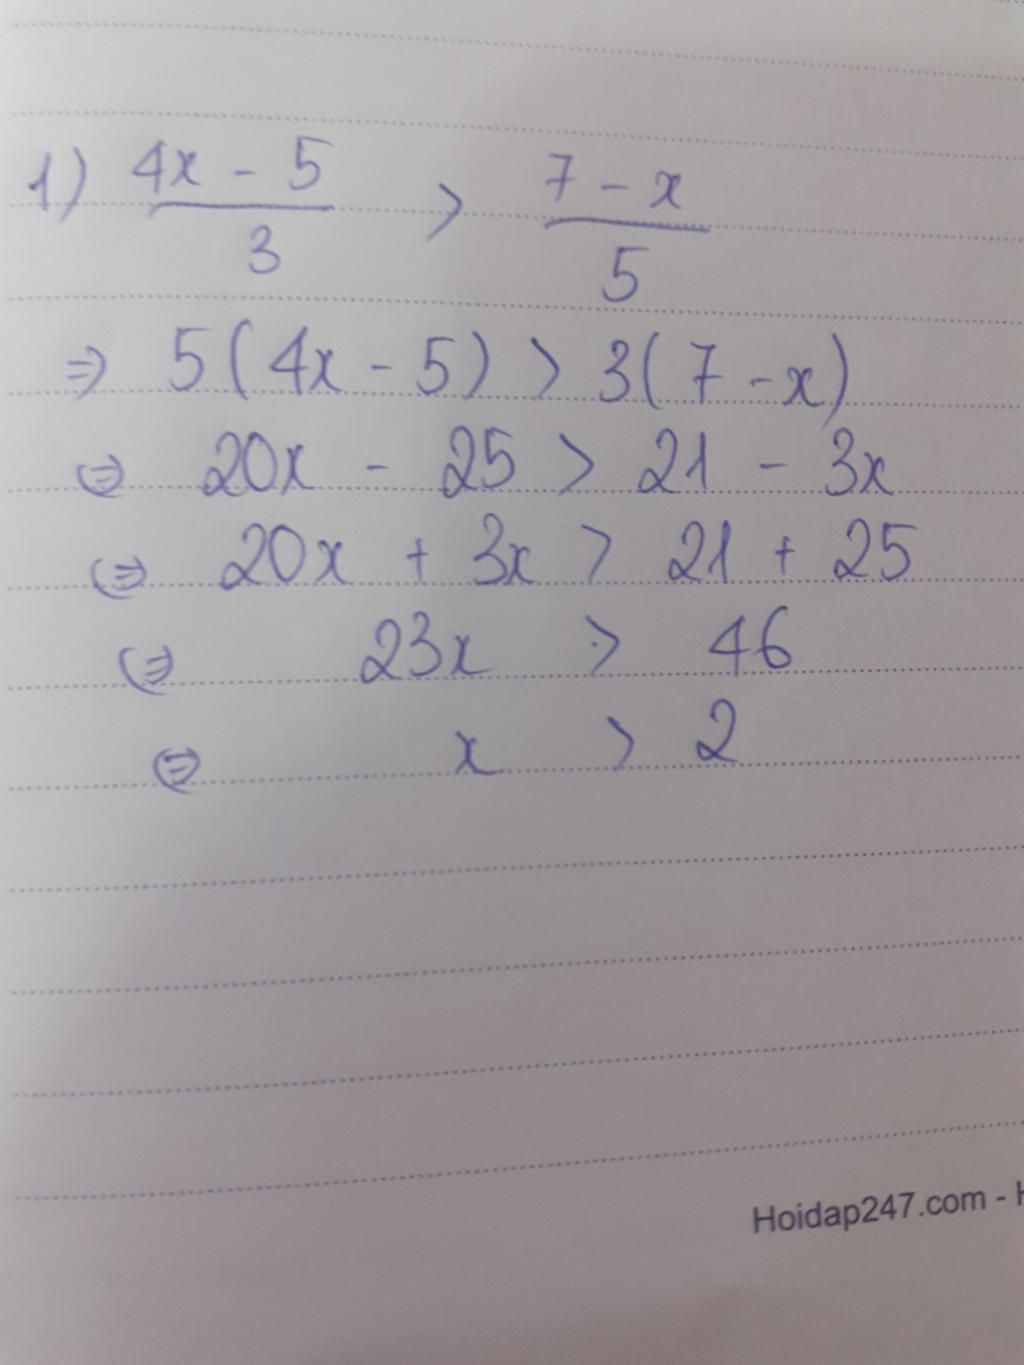 1) 4x - 5 / 3 > 7 - x / 5
⇒ 5(4x - 5) > 3(7 - x)
⇔ 20x - 25 > 21 - 3x
⇔ 20x + 3x > 21 + 25
⇔ 23x > 46
⇔ x > 2
Hoidap247.com - H